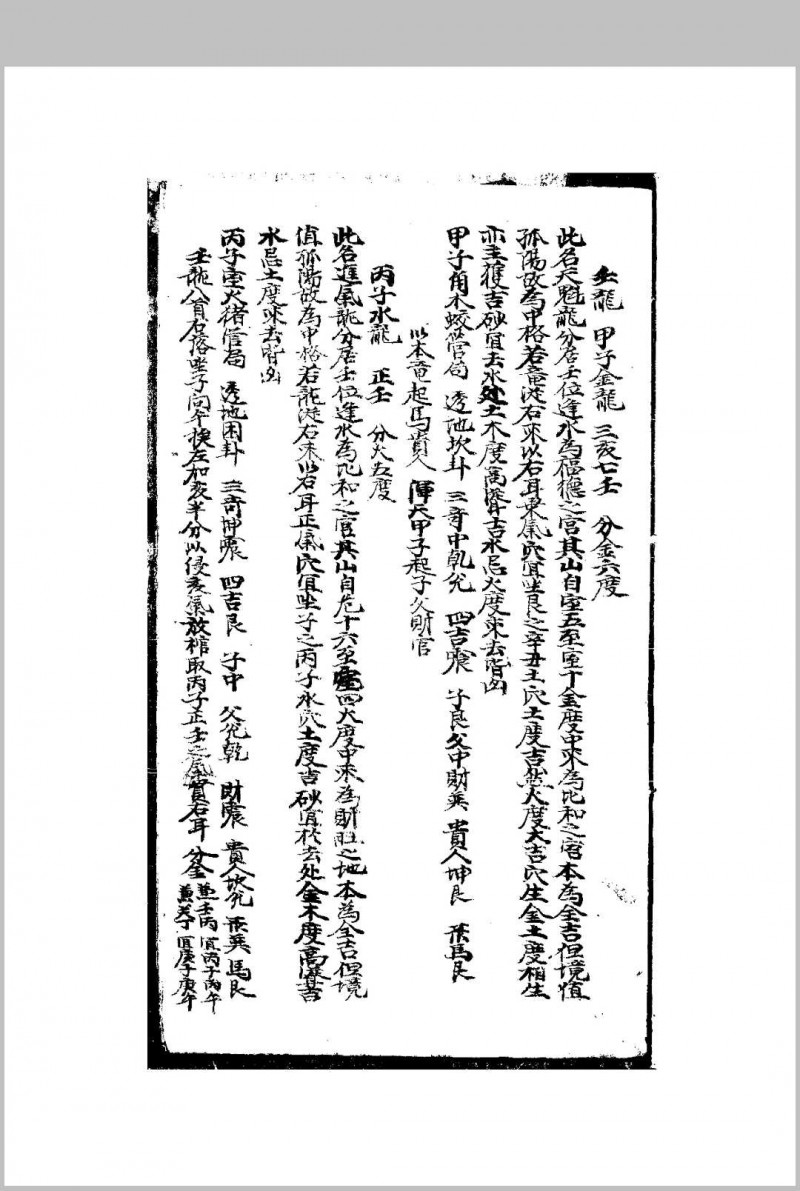 壬龍 甲子金龍 三亥七壬 分金六度
此名天魁龍分居壬位逢水為福德之官其山自室五至室十金度中來為比和之官本為全吉但境值
孤陽故為中格若竜從右來以右耳乘氣穴宜坐艮之辛丑土穴土度吉然火度大吉穴生金土度相生
亦主獲吉砂宜去水处土木度高濬吉水忌火度來去皆凶
甲子角木蛟管局 透地坎卦 三奇中乾兌 四吉震 子艮父中財巽 貴人坤艮 祿馬艮
以本竜起馬貴人 渾天甲子起子父財官
丙子水龍 正壬 分火五度
此名進氣龍分居壬位逢水為比和之官其山自危十六至室四火度中來為財旺之地本為全吉但境
值孤陽故為中格若龍從右來以右耳正氣穴宜坐子之丙子水穴土度吉砂宜於去处金木度高濬吉
水忌土度來去皆凶
丙子室火猪管局 透地困卦 三奇坤震 四吉艮 子中 父兌乾 財震 貴人坎兌 祿巽馬艮
壬龍入首右落坐子向午挨左加亥半分以侵亥氣放棺取丙子正壬之氣貫右耳 分金 兼壬丙宜丙子丙午
兼癸丁宜庚子庚午